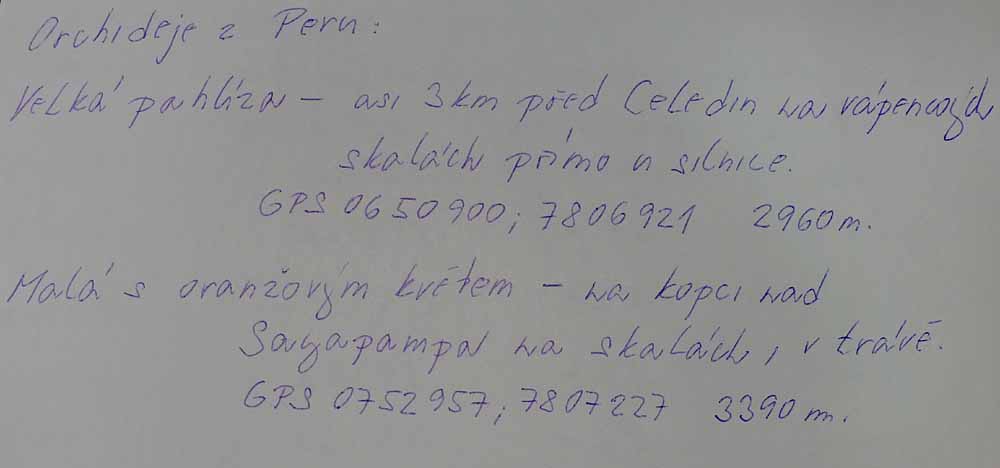 Orchideje z Peru:
Velká pahlíza – asi 3km před Celedin na vápencových
skalách přímo u silnice.
GPS 0650900; 7806921 2960m.
Malá s oranžovým květem – na kopci nad
Sayapampa na skalách, v trávě.
GPS 0752957; 7807227 3390m.